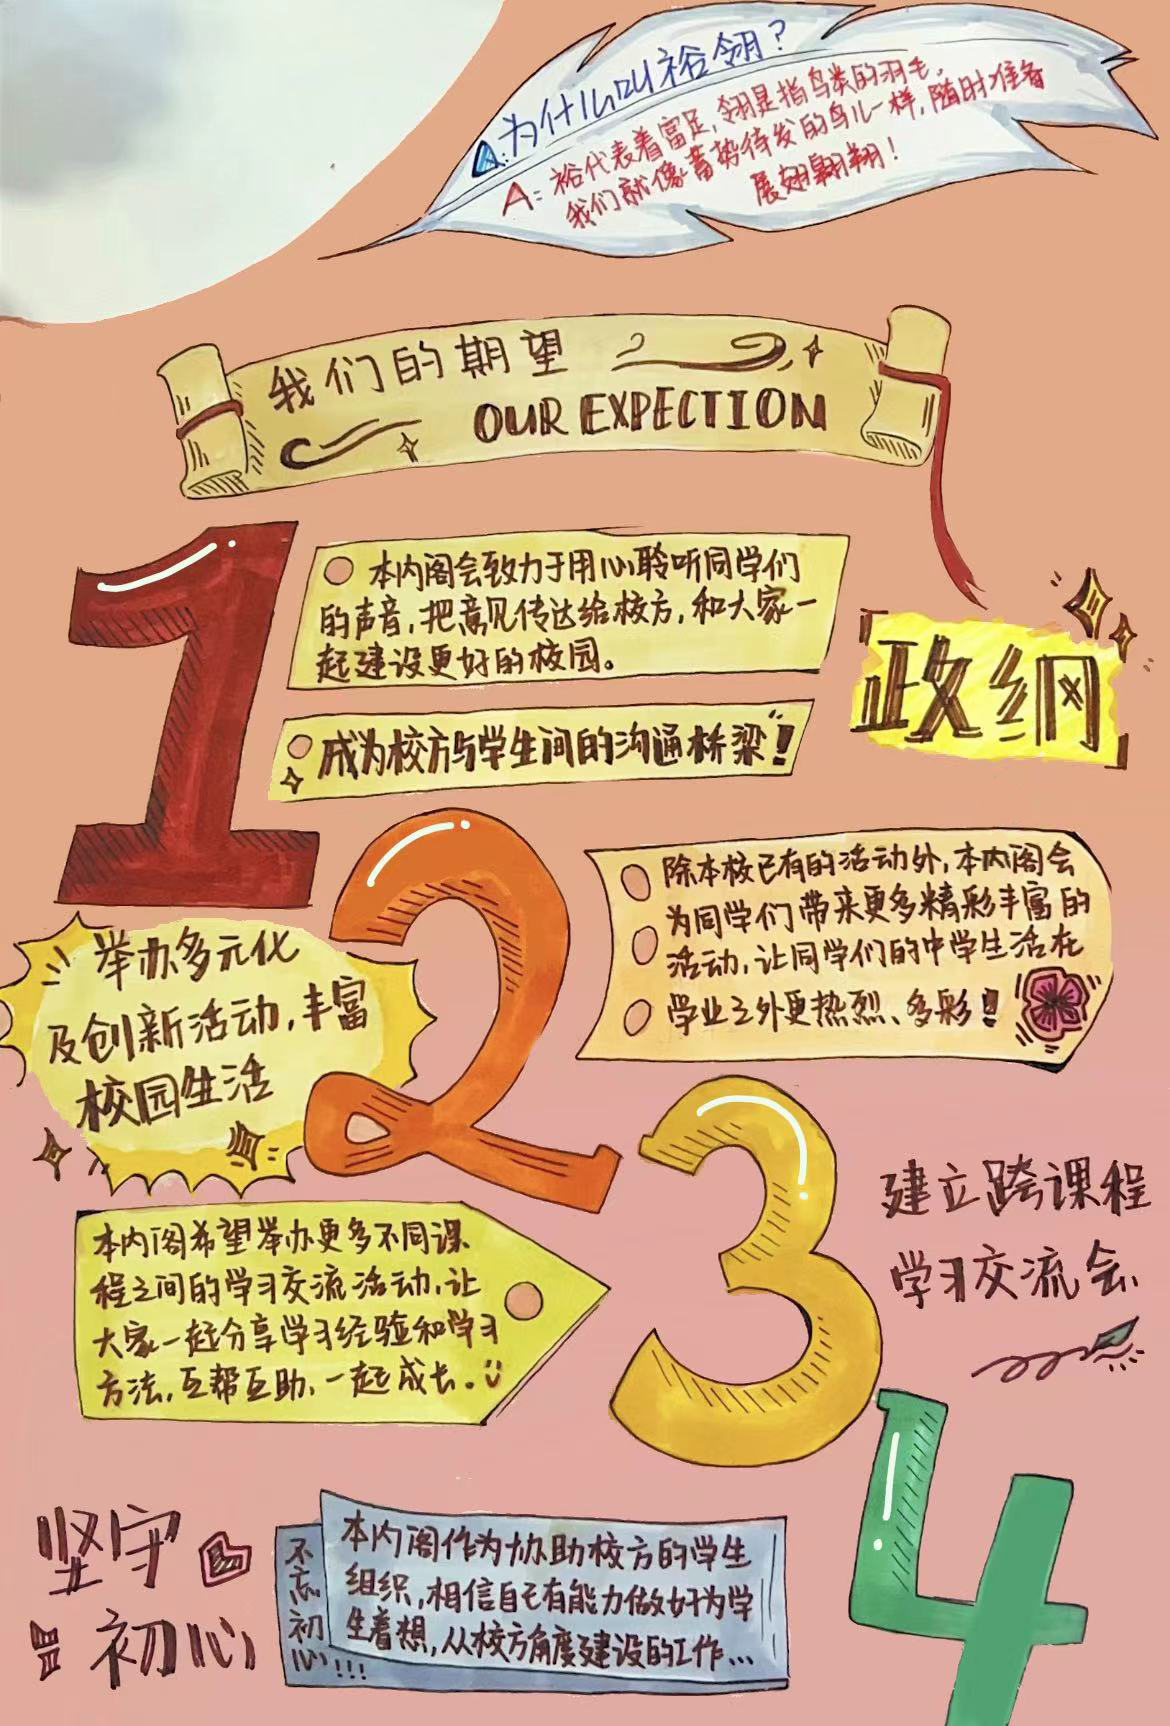 Q:为什么叫裕翎？
A：裕代表着富足，翎是指鸟类的羽毛，
我们就像蓄势待发的鸟儿一样，随时准备
展翅翱翔！
我们的期望
OUR EXPECTION
政纲
1
本内阁会致力于用心聆听同学们
的声音，把意见传达给校方，和大家一
起建设更好的校园。
成为校方与学生间的沟通桥梁"！
2
举办多元化
及创新活动，丰富
校园生活
除本校已有的活动外，本内阁会
为同学们带来更多精彩丰富的
活动，让同学们的中学生活在
学业之外更热烈、多彩！
3
建立跨课程
学习交流会
本内阁希望举办更多不同课
程之间的学习交流活动，让
大家一起分享学习经验和学习
方法，互帮互助，一起成长。
4
坚守
初心
不忘初心!!!
本内阁作为协助校方的学生
组织，相信自己有能力做好为学
生着想，从校方角度建设的工作...